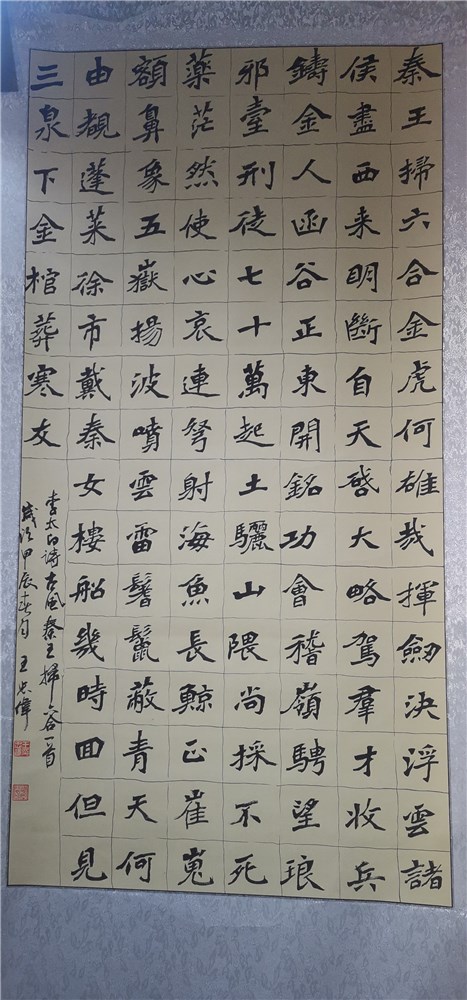 秦王掃六合金虎何雄哉揮劒決浮雲諸
侯盡西来明斷自天啓大略駕羣才收兵
鑄金人函谷正東開銘功會稽嶺騁望琅
邪臺刑徒七十萬起土驪山隈尚採不死
藥茫然使心哀連弩射海魚長鯨正崔嵬
額鼻象五嶽揚波噴雲雷鬐鬣蔽青天何
由覩蓬萊徐市戴秦女樓船幾時回但見
三泉下金棺葬寒灰
李太白詩古風秦王掃六合一首
歲次甲辰春月王忠偉